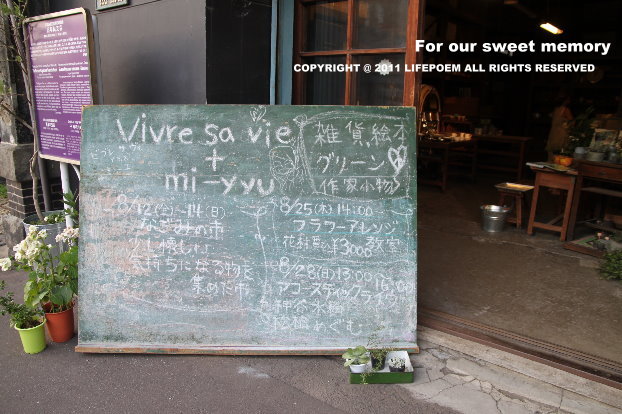 For our sweet memory
COPYRIGHT @ 2011 LIFEPOEM ALL RIGHTS RESERVED
Vivre sa vie
+
mi-yyu
雑貨,絵本
グリーン
(作家小物)
8/12(金)~14(日)
なごみの市
少し嬉しい
気持ちになる物を
集めた市
8/25(木)14:00
フラワーアレンジ
花材費 ¥3000 教室
8/28(日)13:00
16:00
アコースティックライヴ